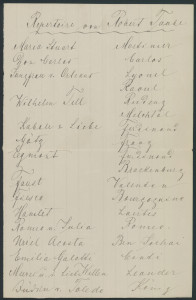 Repertoire von Robert Taube
Maria Stuart Mortimer
Don Carlos Carlos
Jungfrau v. Orleans Lyonel
Raoul
Wilhelm Tell Rudenz
Melchthal
Kabale u. Liebe Ferdinand
Götz Franz
Egmont Ferdinand
Brackenburg
Faust Valentin
Fiesco Bourgognino
Hamlet Laertes
Romeo u. Julia Romeo
Uriel Acosta Ben Jochai
Emilia Galotti
Leander
Jüdin v. Toledo König